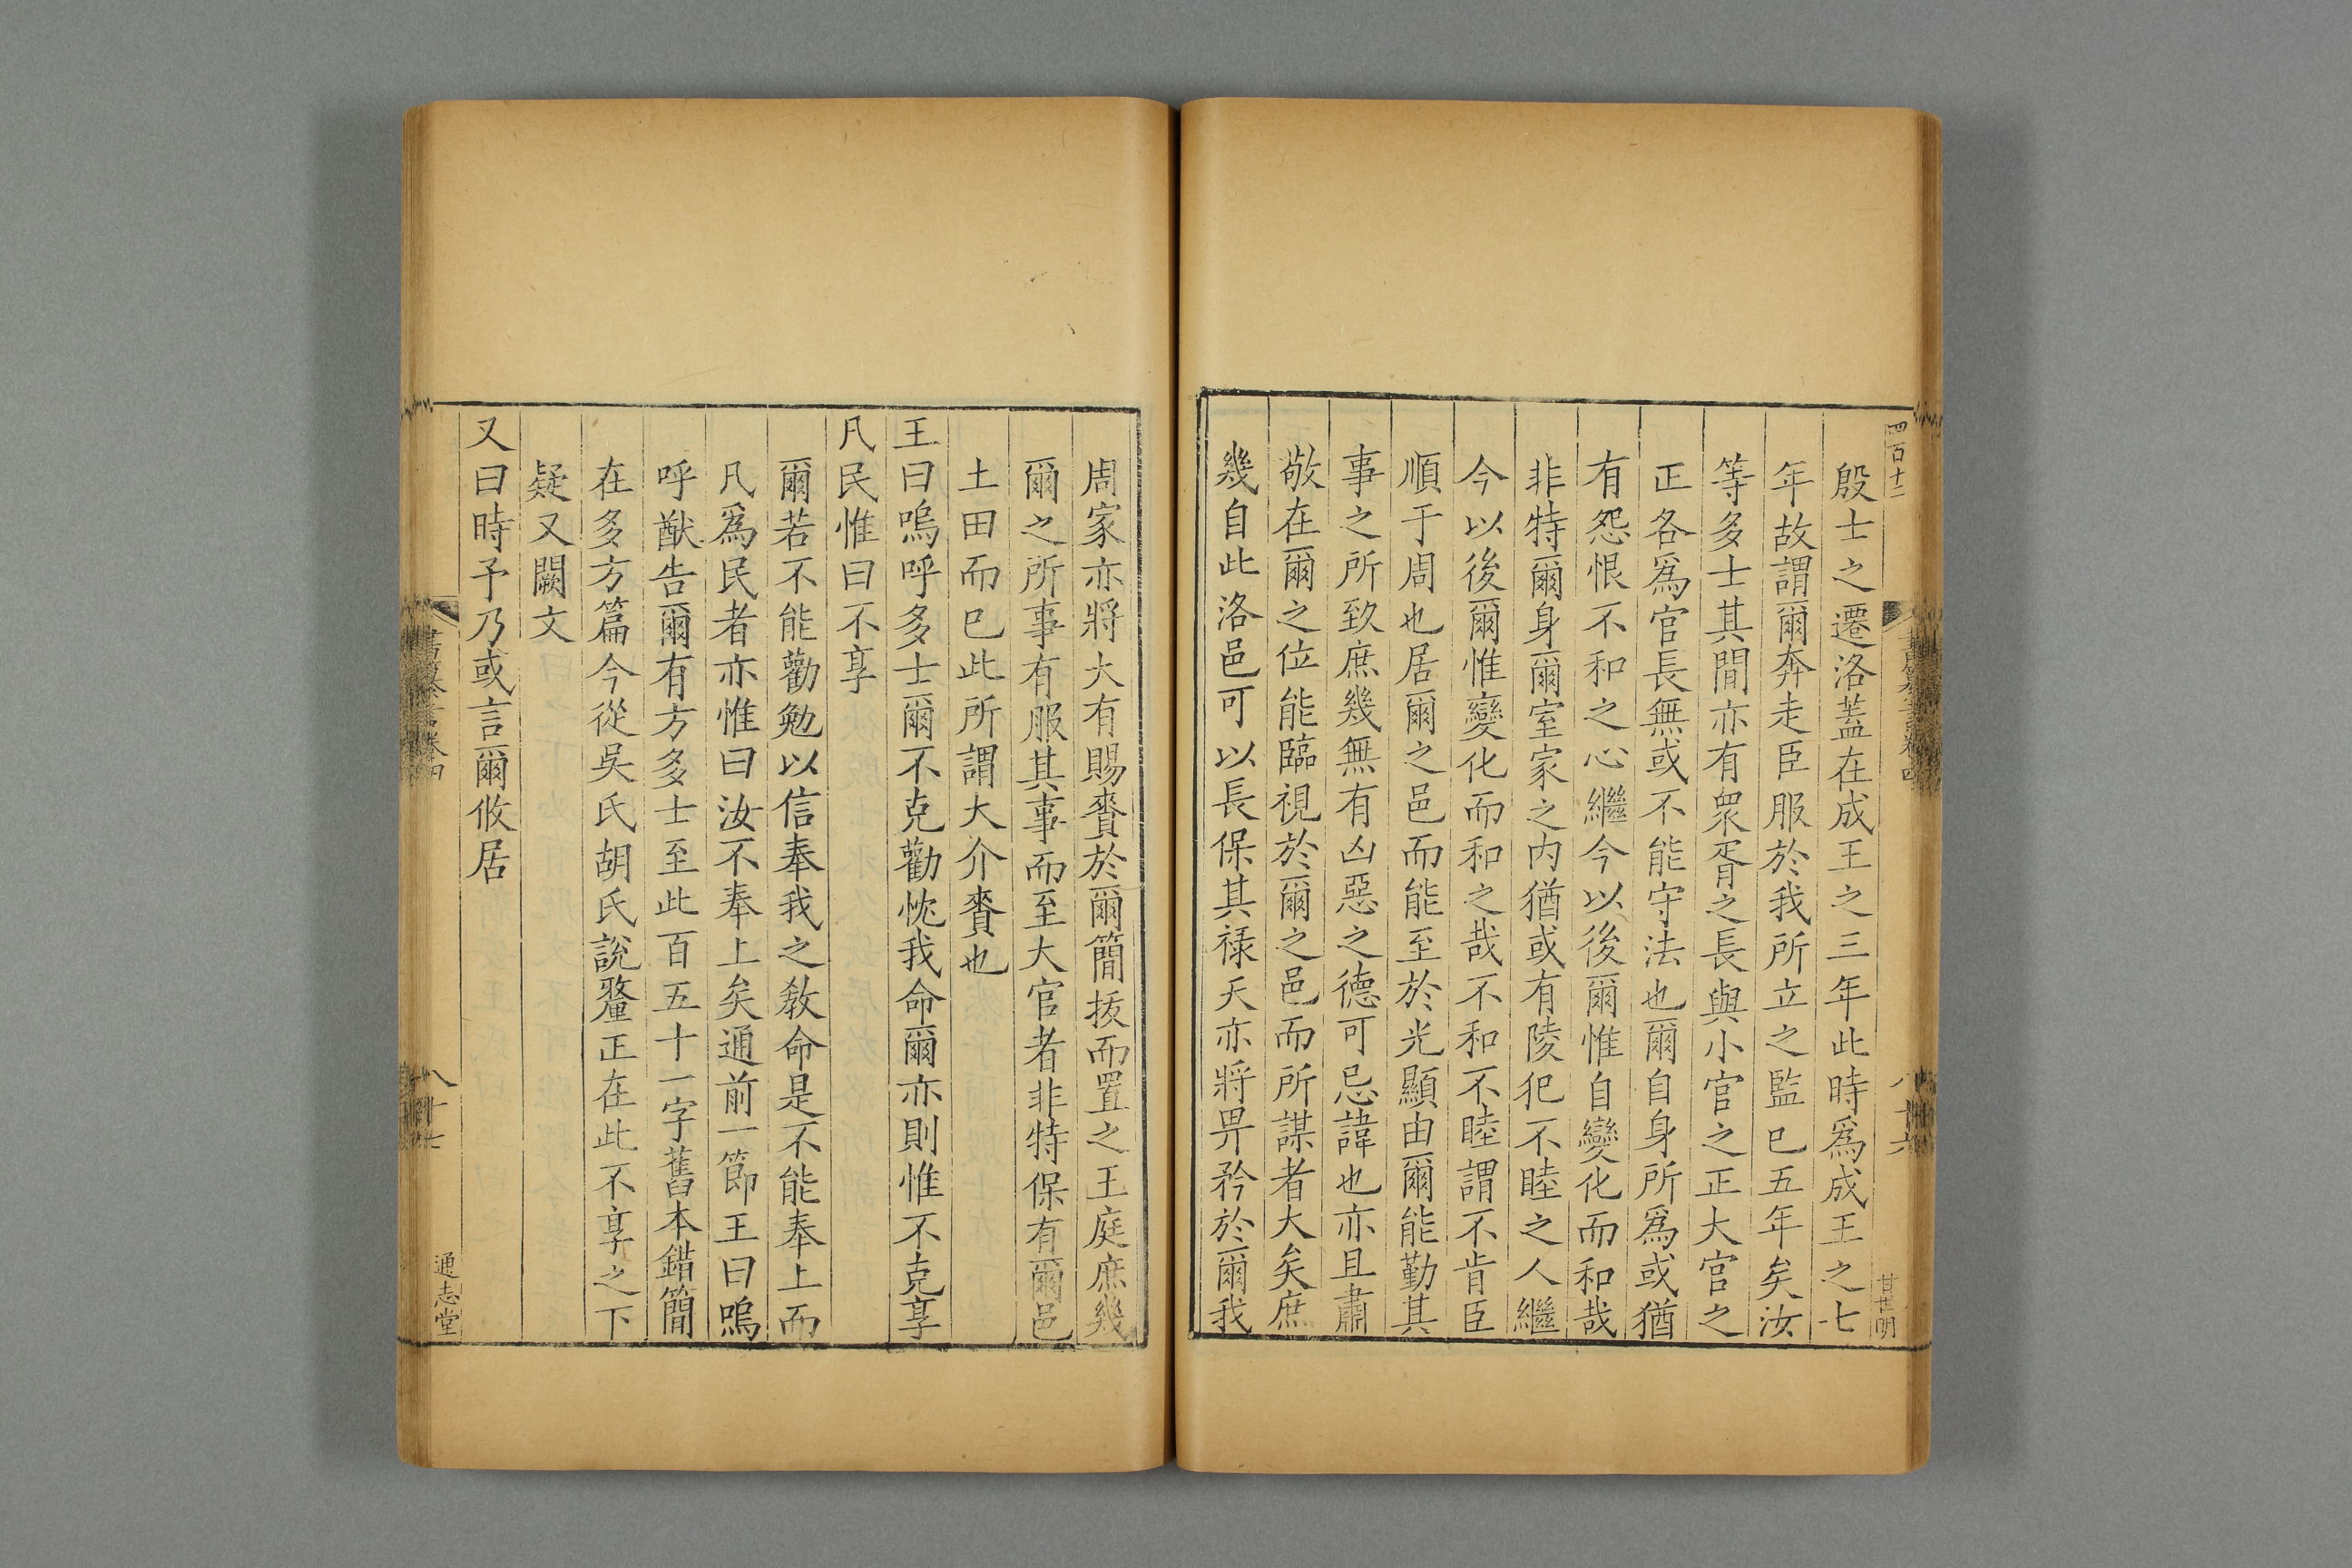 四百十二
甘世明
殷士之遷洛蓋在成王之三年此時爲成王之七
年故謂爾奔走臣服於我所立之監巳五年矣汝
等多士其間亦有衆胥之長與小官之正大官之
正各爲官長無或不能守法也爾自身所爲或猶
有怨恨不和之心繼今以後爾惟自變化而和哉
非特爾身爾室家之内猶或有陵犯不睦之人繼
今以後爾惟變化而和之哉不和不睦謂不肯臣
順于周也居爾之邑而能至於光顯由爾能勤其
事之所致庶幾無有凶惡之德可忌諱也亦且肅
敬在爾之位能臨視於爾之邑而所謀者大矣庶
幾自此洛邑可以長保其禄天亦將畀矜於爾我
周家亦將大有賜賚於爾簡拔而置之王庭庶幾
爾之所事有服其事而至大官者非特保有爾邑
土田而巳此所謂大介賚也
王曰嗚呼多士爾不克勸忱我命爾亦則惟不克享
凡民惟曰不享
爾若不能勸勉以信奉我之敎命是不能奉上而
凡爲民者亦惟曰汝不奉上矣通前一節王曰嗚
呼猷告爾有方多士至此百五十一字舊本錯簡
在多方篇今從吳氏胡氏說釐正在此不享之下
疑又闕文
又曰時予乃或言爾攸居
八十七
通志堂